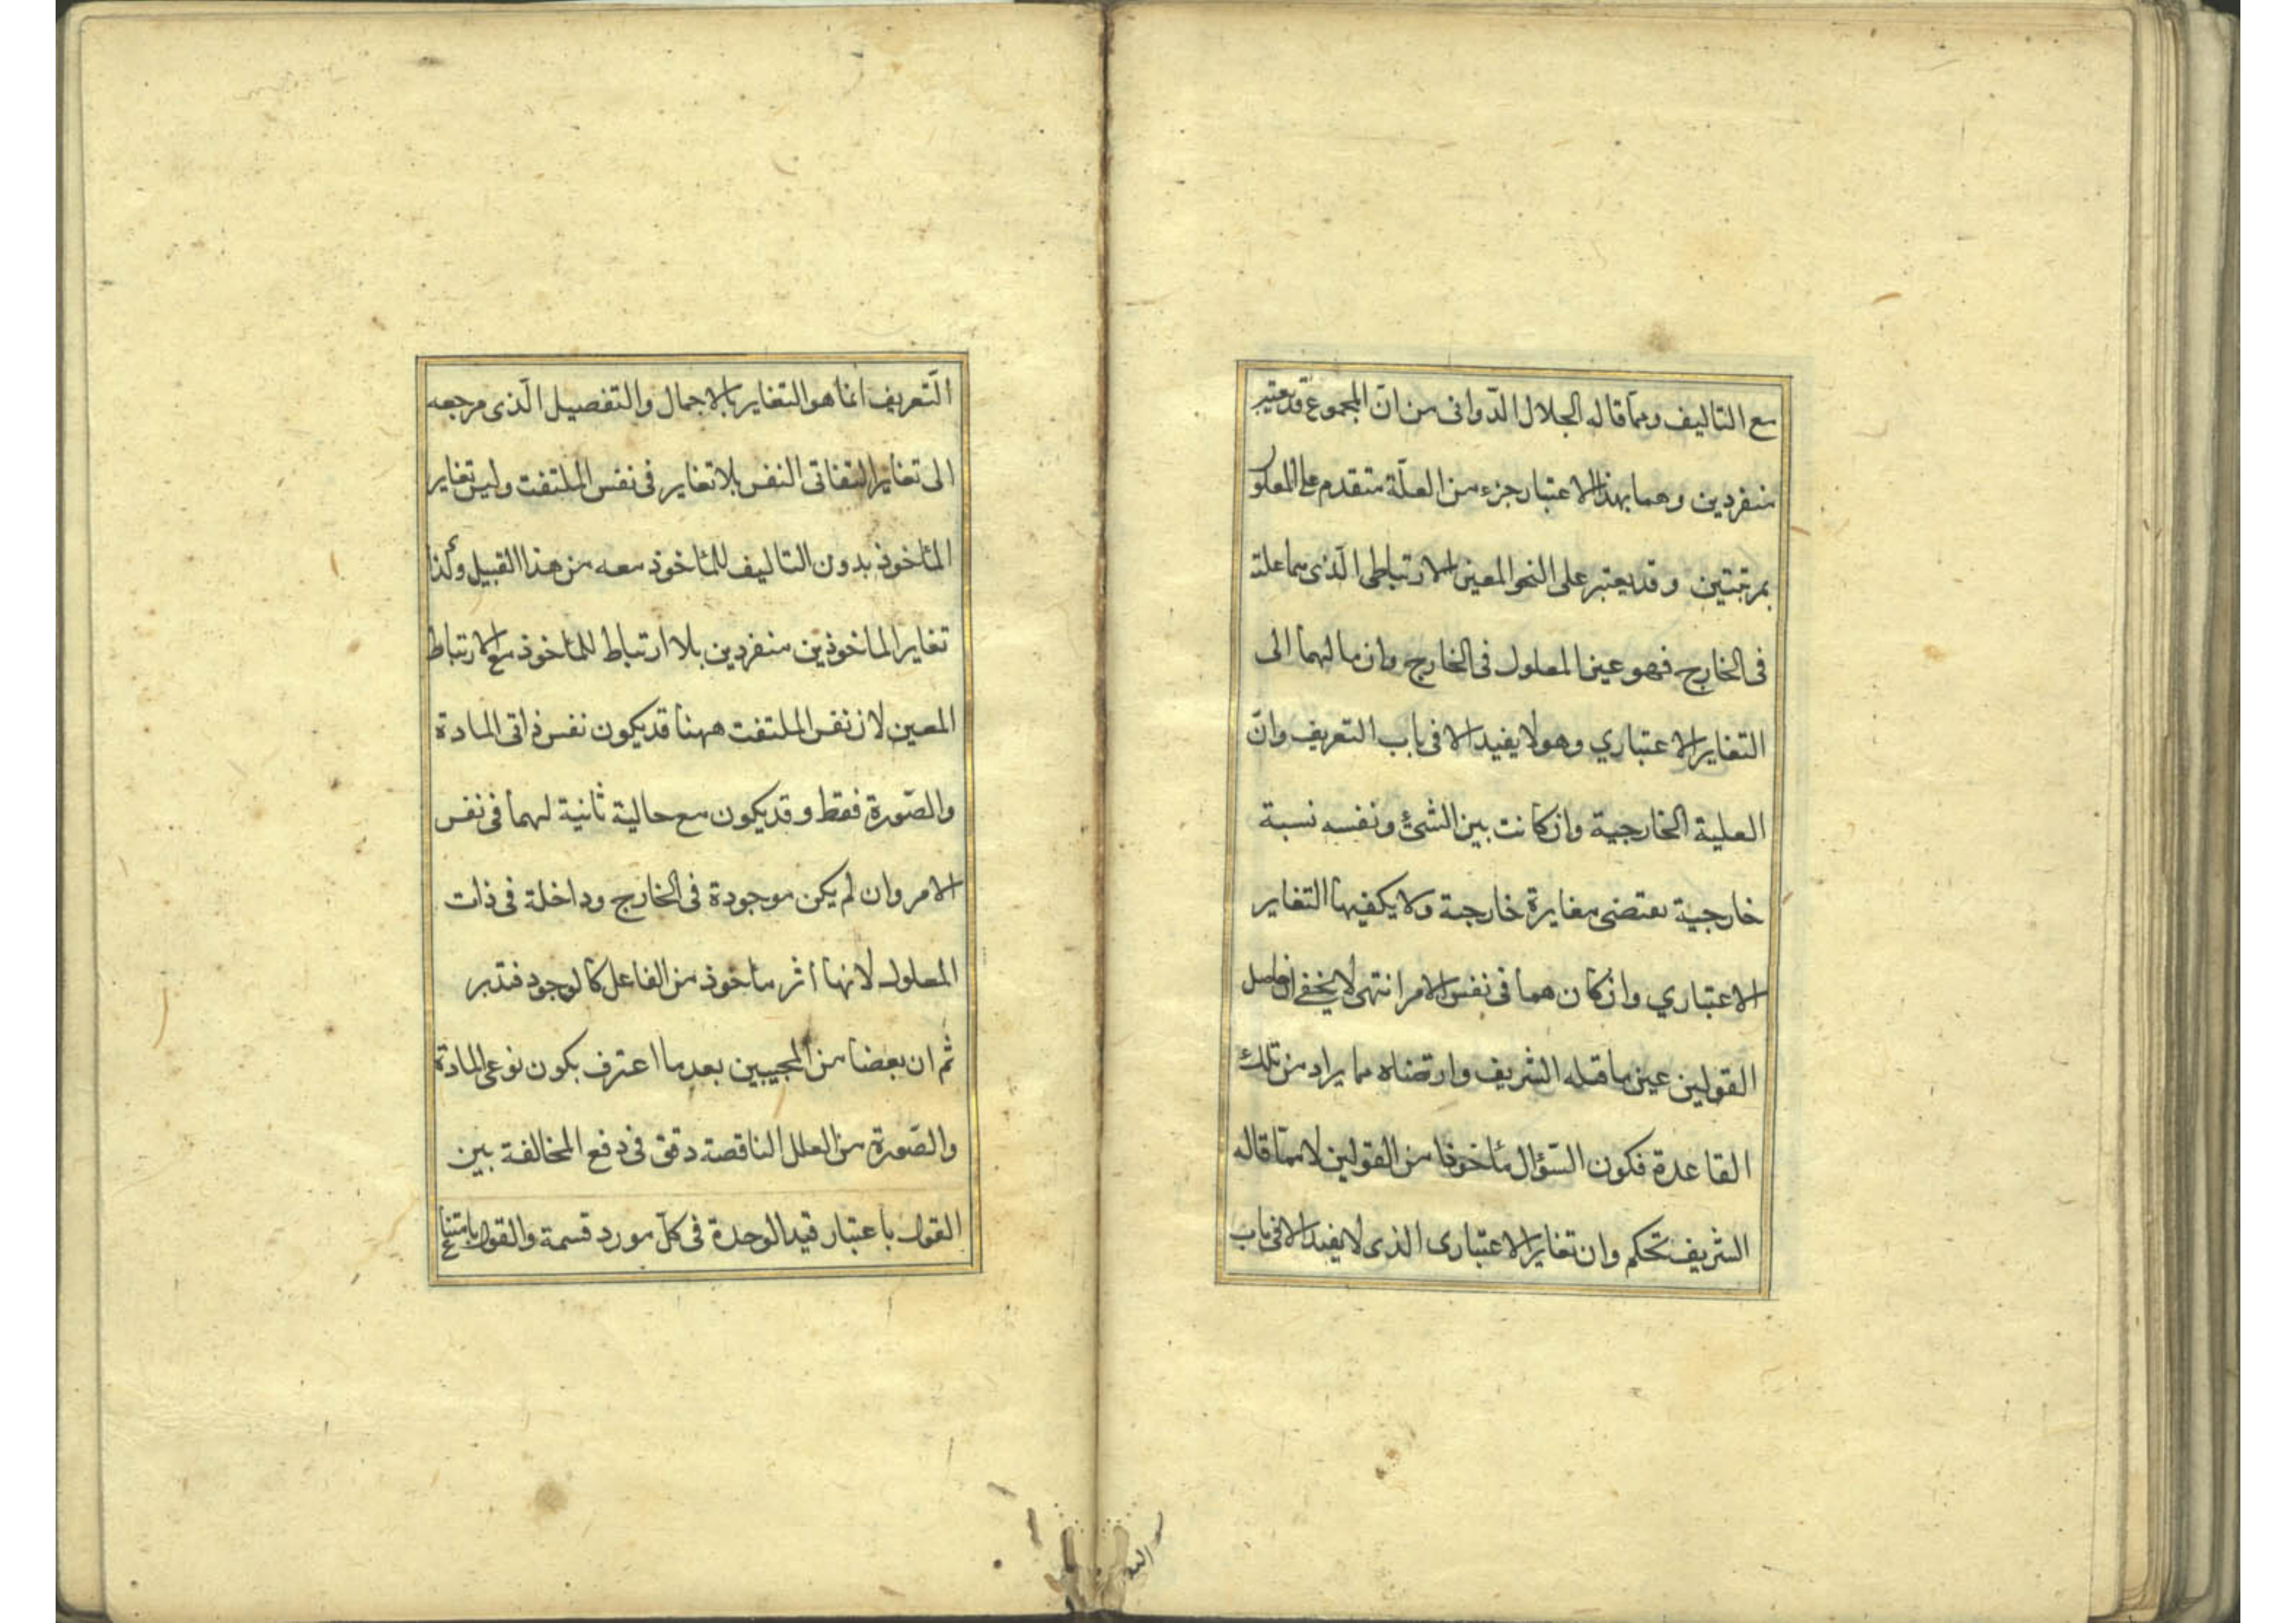 مع التاليف ومما قاله الجلال الدّوانى من انّ المجموع قد يعتبر
منفردين وهما بهذا الاعتبار جزء من العلّة متقدم على المعلو
بمرتبتين وقد يعتبر على النحو المعين الارتباطى الّذى هما علته
فى الخارج فهو عين المعلول فى الخارج وان مالهما الى
التغاير الاعتباري وهو لا يفيد الا فى باب التعريف وانّ
العلية الخارجية وان كانت بين الشئ ونفسه نسبة
خارجية تقتضى مغايرة خارجية ولا يكفيها التغاير
الاعتباري وان كان هما فى نفس الامر انتهى لا يخفى ان حاصل
القولين عين ما قبله الشريف وارتضاه مما يراد من تلك
القاعدة فكون السّؤال مأخوذا من القولين لا ممّا قاله
الشريف تحكم وان تغاير الاعتبارى الذى لا يفيد الا فى باب
التّعريف انما هو التغاير بالاجمال والتفصيل الّذى مرجعه
الى تغاير التفاتى النفس بلا تغاير فى نفس الملتفت وليس تغاير
المأخوذ بدون التاليف للمأخوذ معه من هذا القبيل وكذا
تغاير المأخوذين منفردين بلا ارتباط للمأخوذ مع الارتباط
المعين لان نفس الملتفت ههنا قد يكون نفس ذاتى المادة
والصّورة فقط وقد يكون مع حالية ثانية لهما فى نفس
الامر وان لم يكن موجودة فى الخارج وداخلة فى ذات
المعلول لانها اثر مأخوذ من الفاعل كالوجود فتدبر
ثم ان بعضا من المجيبين بعد ما اعترف بكون نوعى المادة
والصّورة من العلل الناقصة دقق فى دفع المخالفة بين
القول باعتبار قيد الوحدة فى كلّ مورد قسمة والقول بامتناع